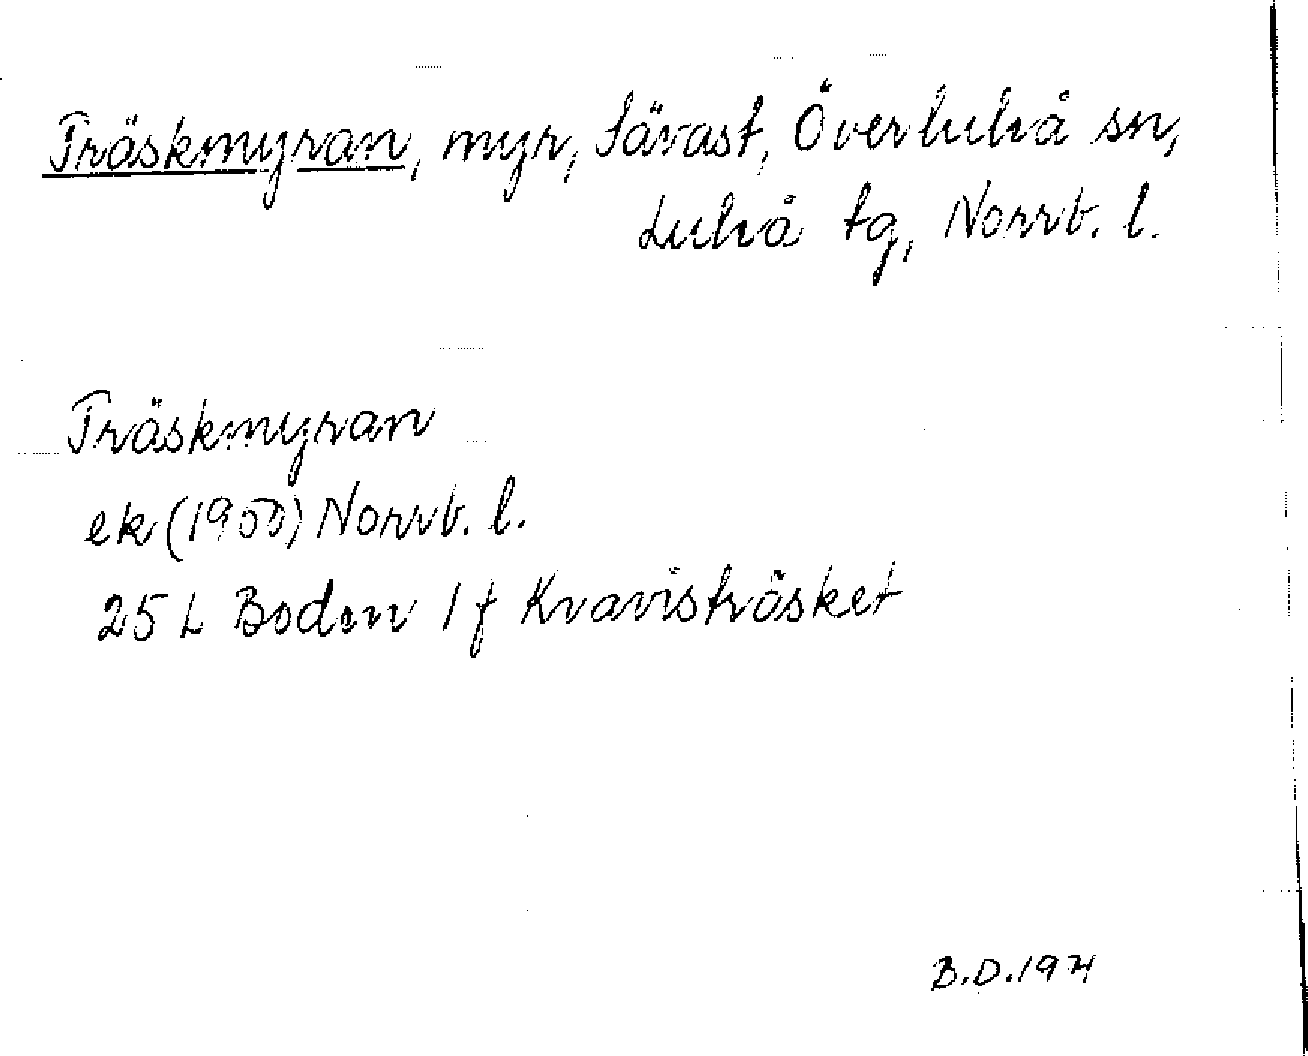 Träskmyran, myr, Sävast, Överluleå sn,
Luleå tg, Norrb. l.
Träskmyran
ek (1950) Norrb. l.
25 L Boden 1 f Kvavisträsket
B.D. 1971